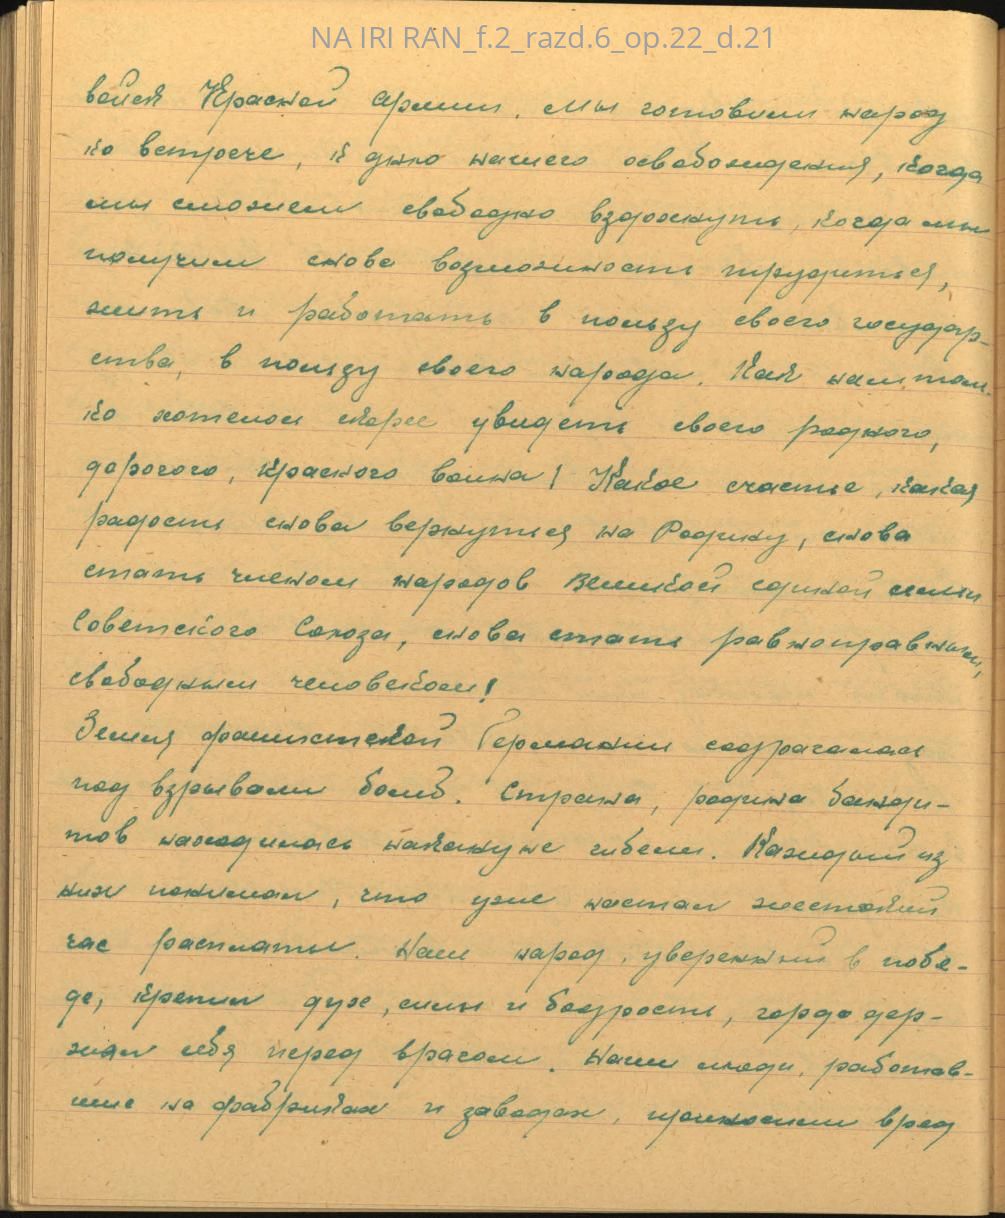 NA IRI RAN_f.2_razd.6_op.22_d.21
войск Красной армии. Мы готовили народ
ко встрече, к дню нашего освобождения, когда
мы сможем свободно вздохнуть, когда мы
получим снова возможность трудиться,
жить и работать в пользу своего государ-
ства, в пользу своего народа. Как нам толь-
ко хотелось скорее увидеть своего родного,
дорогого, красного воина! Какое счастье, какая
радость снова вернуться на Родину, снова
стать членом народов великой единой семьи
Советского Союза, снова стать равноправным,
свободным человеком!
Земля фашистской Германии содрагалась
под взрывами бомб. Страна, родина банди-
тов находилась накануне гибели. Каждый из
них понимал, что уже настал жестокий
час расплаты. Наш народ, уверенный в побе-
де, крепил дух, силы и бодрость, гордо дер-
жал себя перед врагом. Наши люди, работав-
шие на фабриках и заводах, приносили вред